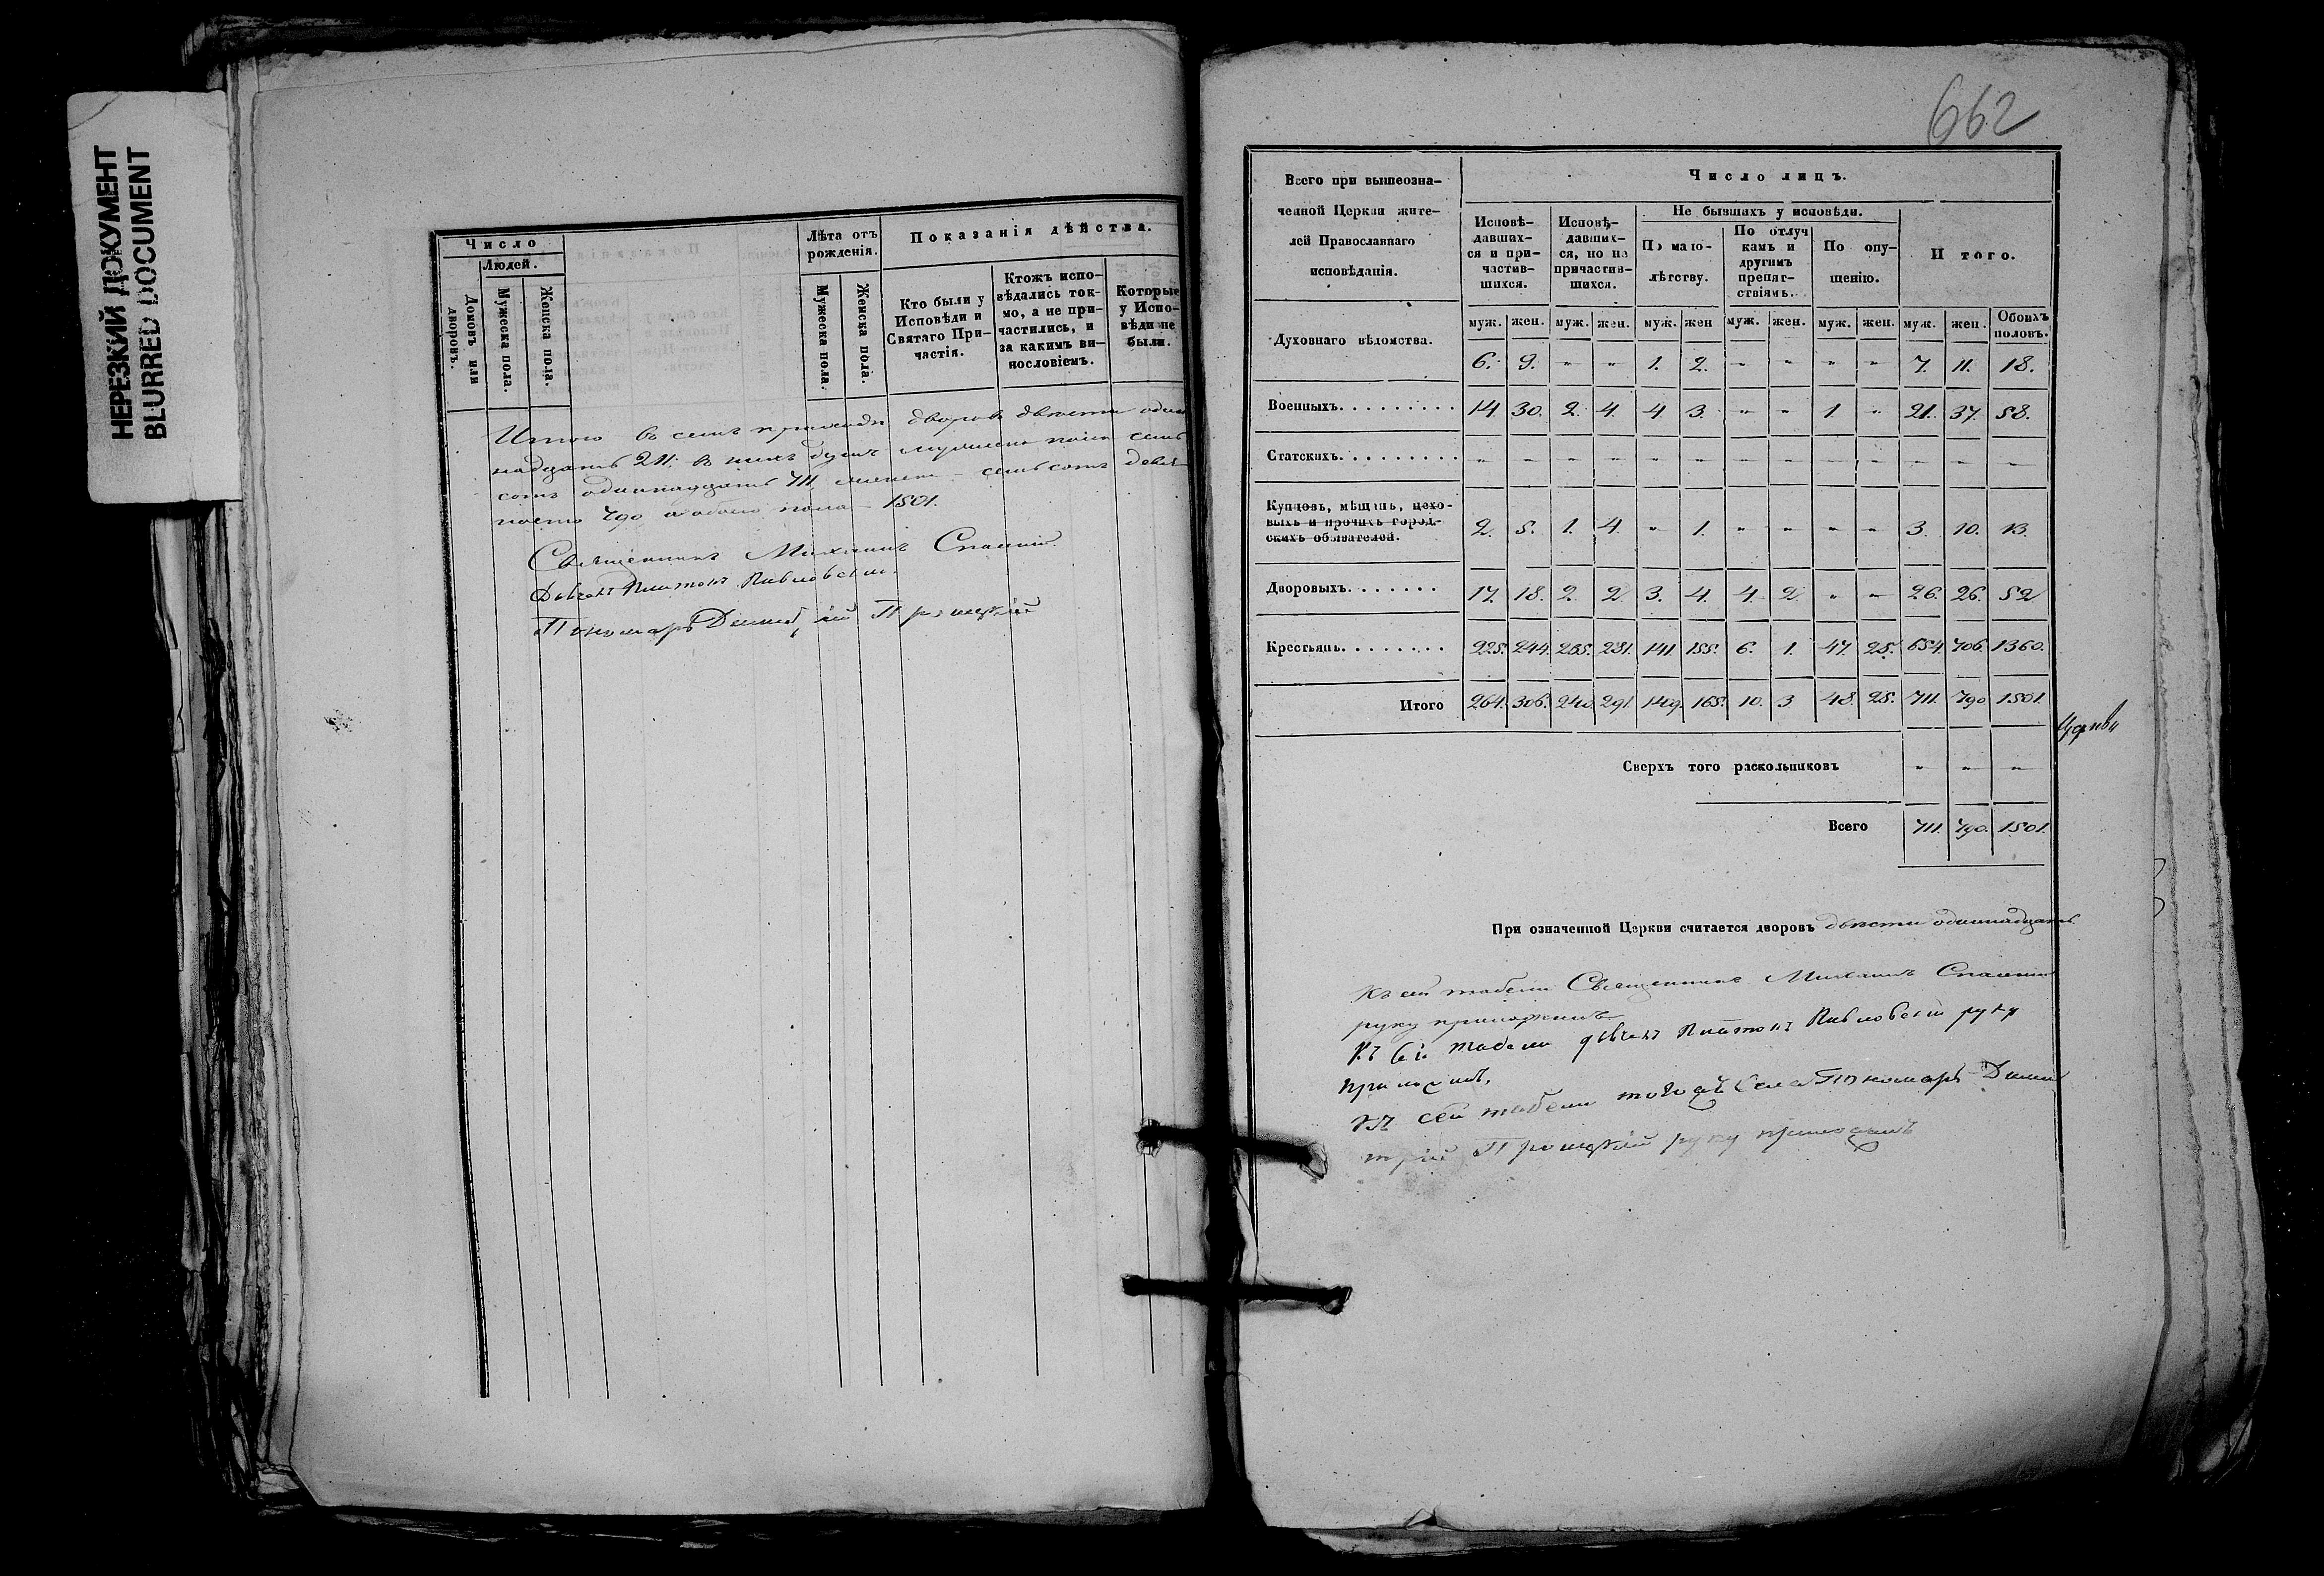 НЕРЕЗКИЙ ДОКУМЕНТ
BLURRED DOCUMENT
Число
Людей.
Домовъ или дворовъ.
Мужеска пола.
Женска пола.
Лѣта отъ рожденія.
Мужеска пола.
Женска пола.
Показанія дѣйства.
Кто были у Исповѣди и Святаго Причастія.
Ктожъ исповѣдались токмо, а не причастились, и за какимъ винословіемъ.
Которые у Исповѣди не были.
Итого въ семъ приходѣ дворовъ двѣсти один
надцать 211; въ нихъ душъ мужеска пола семь
сотъ одиннадцать 711. женска — семьсотъ девя
носто 790 а обоего пола — 1501.
Священникъ Михаилъ Спаскій.
Дьячекъ Платонъ Павловскій.
Пономарь Димитрій Троицкій
662
Всего при вышеозна-
ченной Церкви жите-
лей Православнаго
исповѣданія.
Число лицъ.
Исповѣ-
давших-
ся и при-
частив-
шихся.
Исповѣ-
давших-
ся, но не
причастив-
шихся.
Не бывшихъ у исповѣди.
По мало-
лѣтству.
По отлуч
камъ и
другимъ
препят-
ствіямъ.
По опу-
щенію.
И того.
муж. жен. муж. жен. муж. жен муж. жен. муж. жен. муж. жен. Обоихъ половъ.
Духовнаго вѣдомства. 6. 9. " " 1. 2. " " " " 7. 11. 18.
Военныхъ. 14. 30. 2. 4. 4. 3. " " 1 " 21. 37. 58.
Статскихъ. " " " " " " " " " " " " "
Купцовъ, мѣщанъ, цехо-
выхъ и прочихъ город-
скихъ обывателей. 2. 5. 1. 4. " 1. " " " " 3. 10. 13.
Дворовыхъ. 17. 18. 2. 2. 3. 4. 4. 2. " " 26. 26. 52
Крестьянъ. 225. 244. 235. 281. 141. 155. 6. 1. 47. 25. 654. 706. 1360.
Итого 264. 306. 240. 291. 149. 165. 10. 3 48. 25. 711. 790 1501.
Церкви
Сверхъ того раскольниковъ " " "
Всего 711. 790. 1501.
При означенной Церкви считается дворовъ двѣсти одиннадцать.
Къ сей табели Священникъ Михаилъ Спаскій
руку приложилъ
Къ сей табели дьячекъ Платонъ Павловскій руку
приложилъ.
Къ сей табели тогожъ Села Пономарь Дими
трій Троицкій руку приложилъ